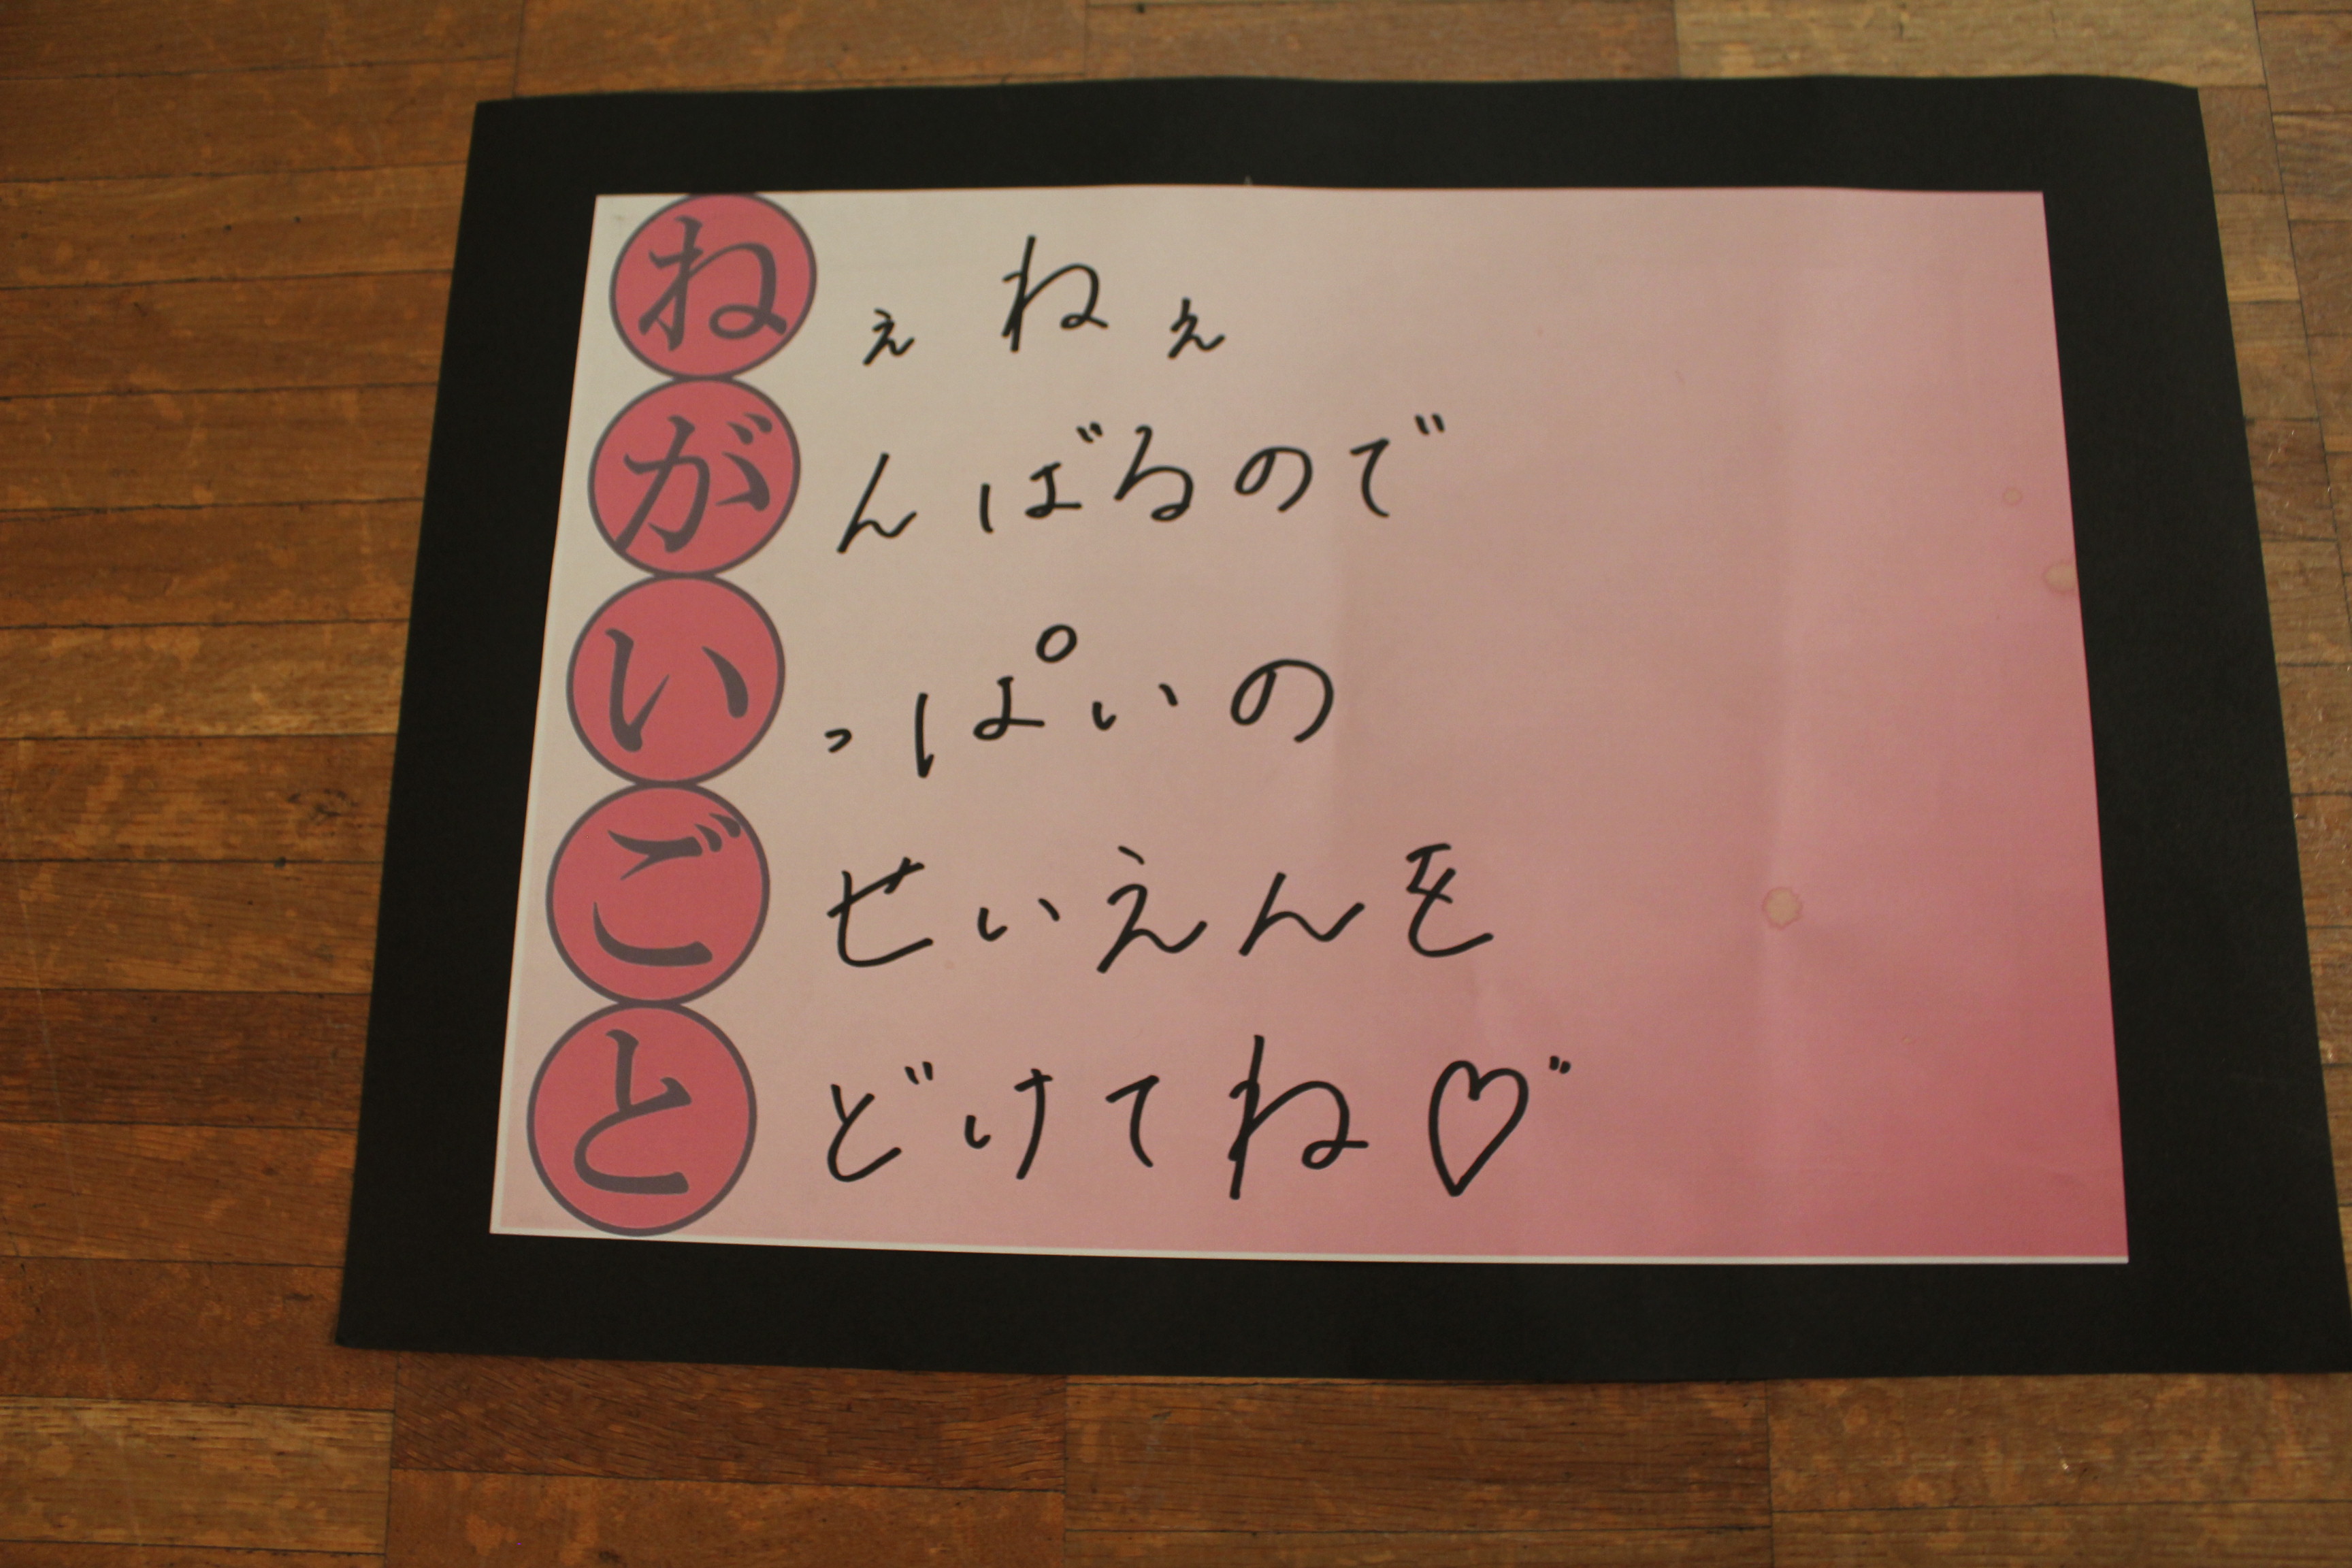 ねぇねぇ
がんばるので
いっぱいの
ごせいえんを
とどけてね♡"